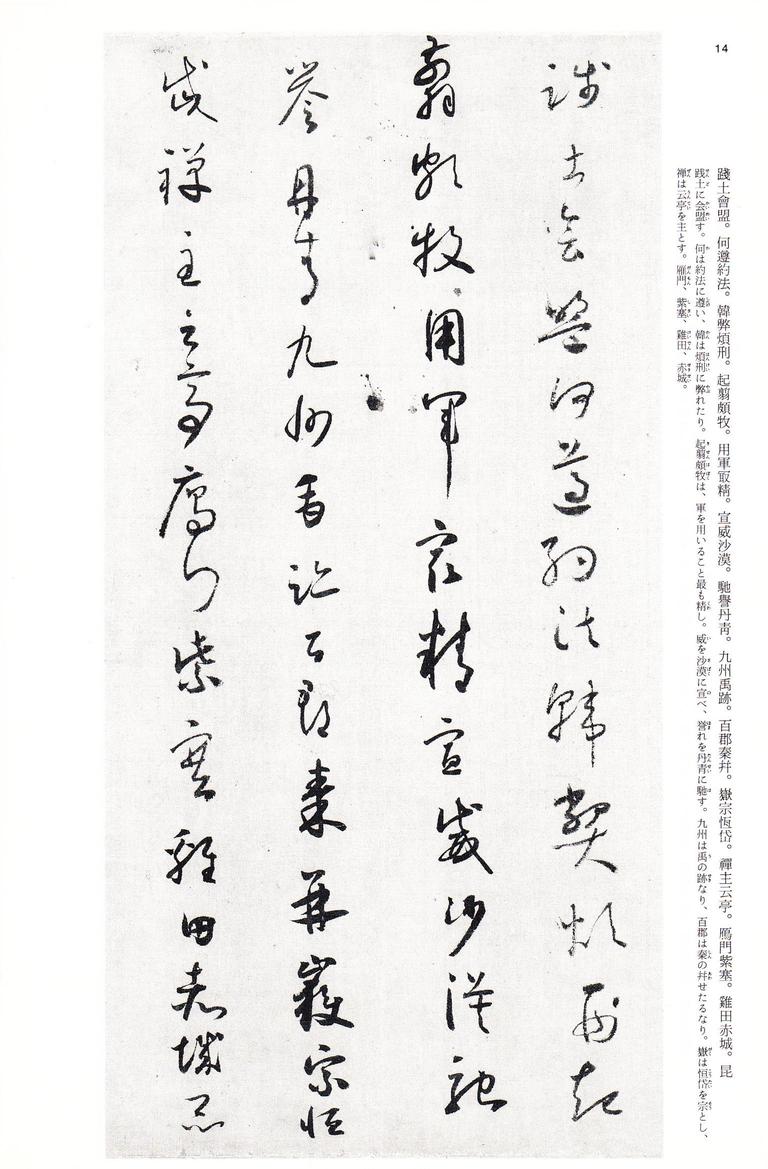 14
踐土會盟。何遵約法。韓弊煩刑。起翦頗牧。用軍冣精。宣威沙漠。馳譽丹靑。九州禹跡。百郡秦幷。嶽宗恆岱。禪主云亭。鴈門紫塞。雞田赤城。昆
践土に会盟す。何は約法に遵い、韓は煩刑に弊れたり。起翦頗牧は、軍を用いること最も精し。威を沙漠に宣べ、誉れを丹青に馳す。九州は禹の跡なり、百郡は秦の幷せたるなり。嶽は恒岱を宗とし、
禅は云亭を主とす。雁門、紫塞、雞田、赤城。
踐土會盟何遵約法韓弊煩刑起
翦頗牧用軍冣精宣威沙漠馳
譽丹靑九州禹跡百郡秦幷嶽宗恆
岱禪主云亭鴈門紫塞雞田赤城昆